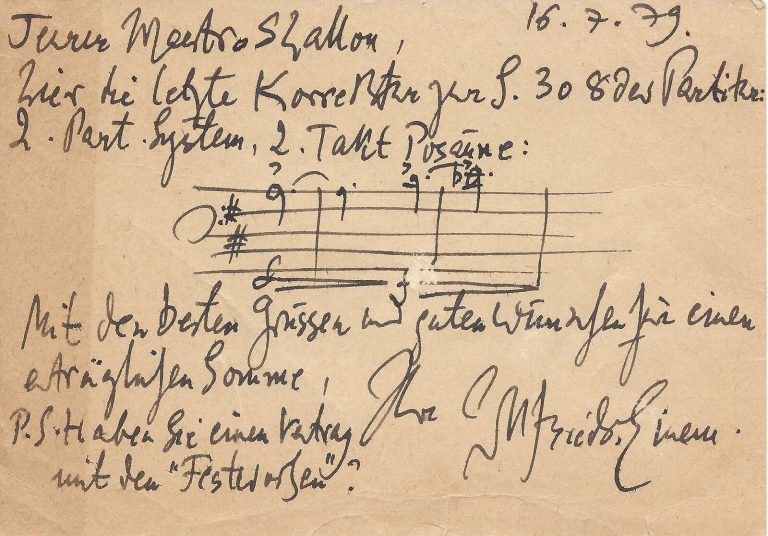 16.7.79.
Teurer Maestro Shallon,
hier die letzte Korrektur zur S. 308 der Partitur:
2. Part. System, 2. Takt Posaune:
Mit den besten Grüssen und guten Wünschen für einen
erträglichen Sommer,
Ihr Gottfried v. Einem.
P.S. Haben Sie einen Vertrag
mit den "Festwochen"?